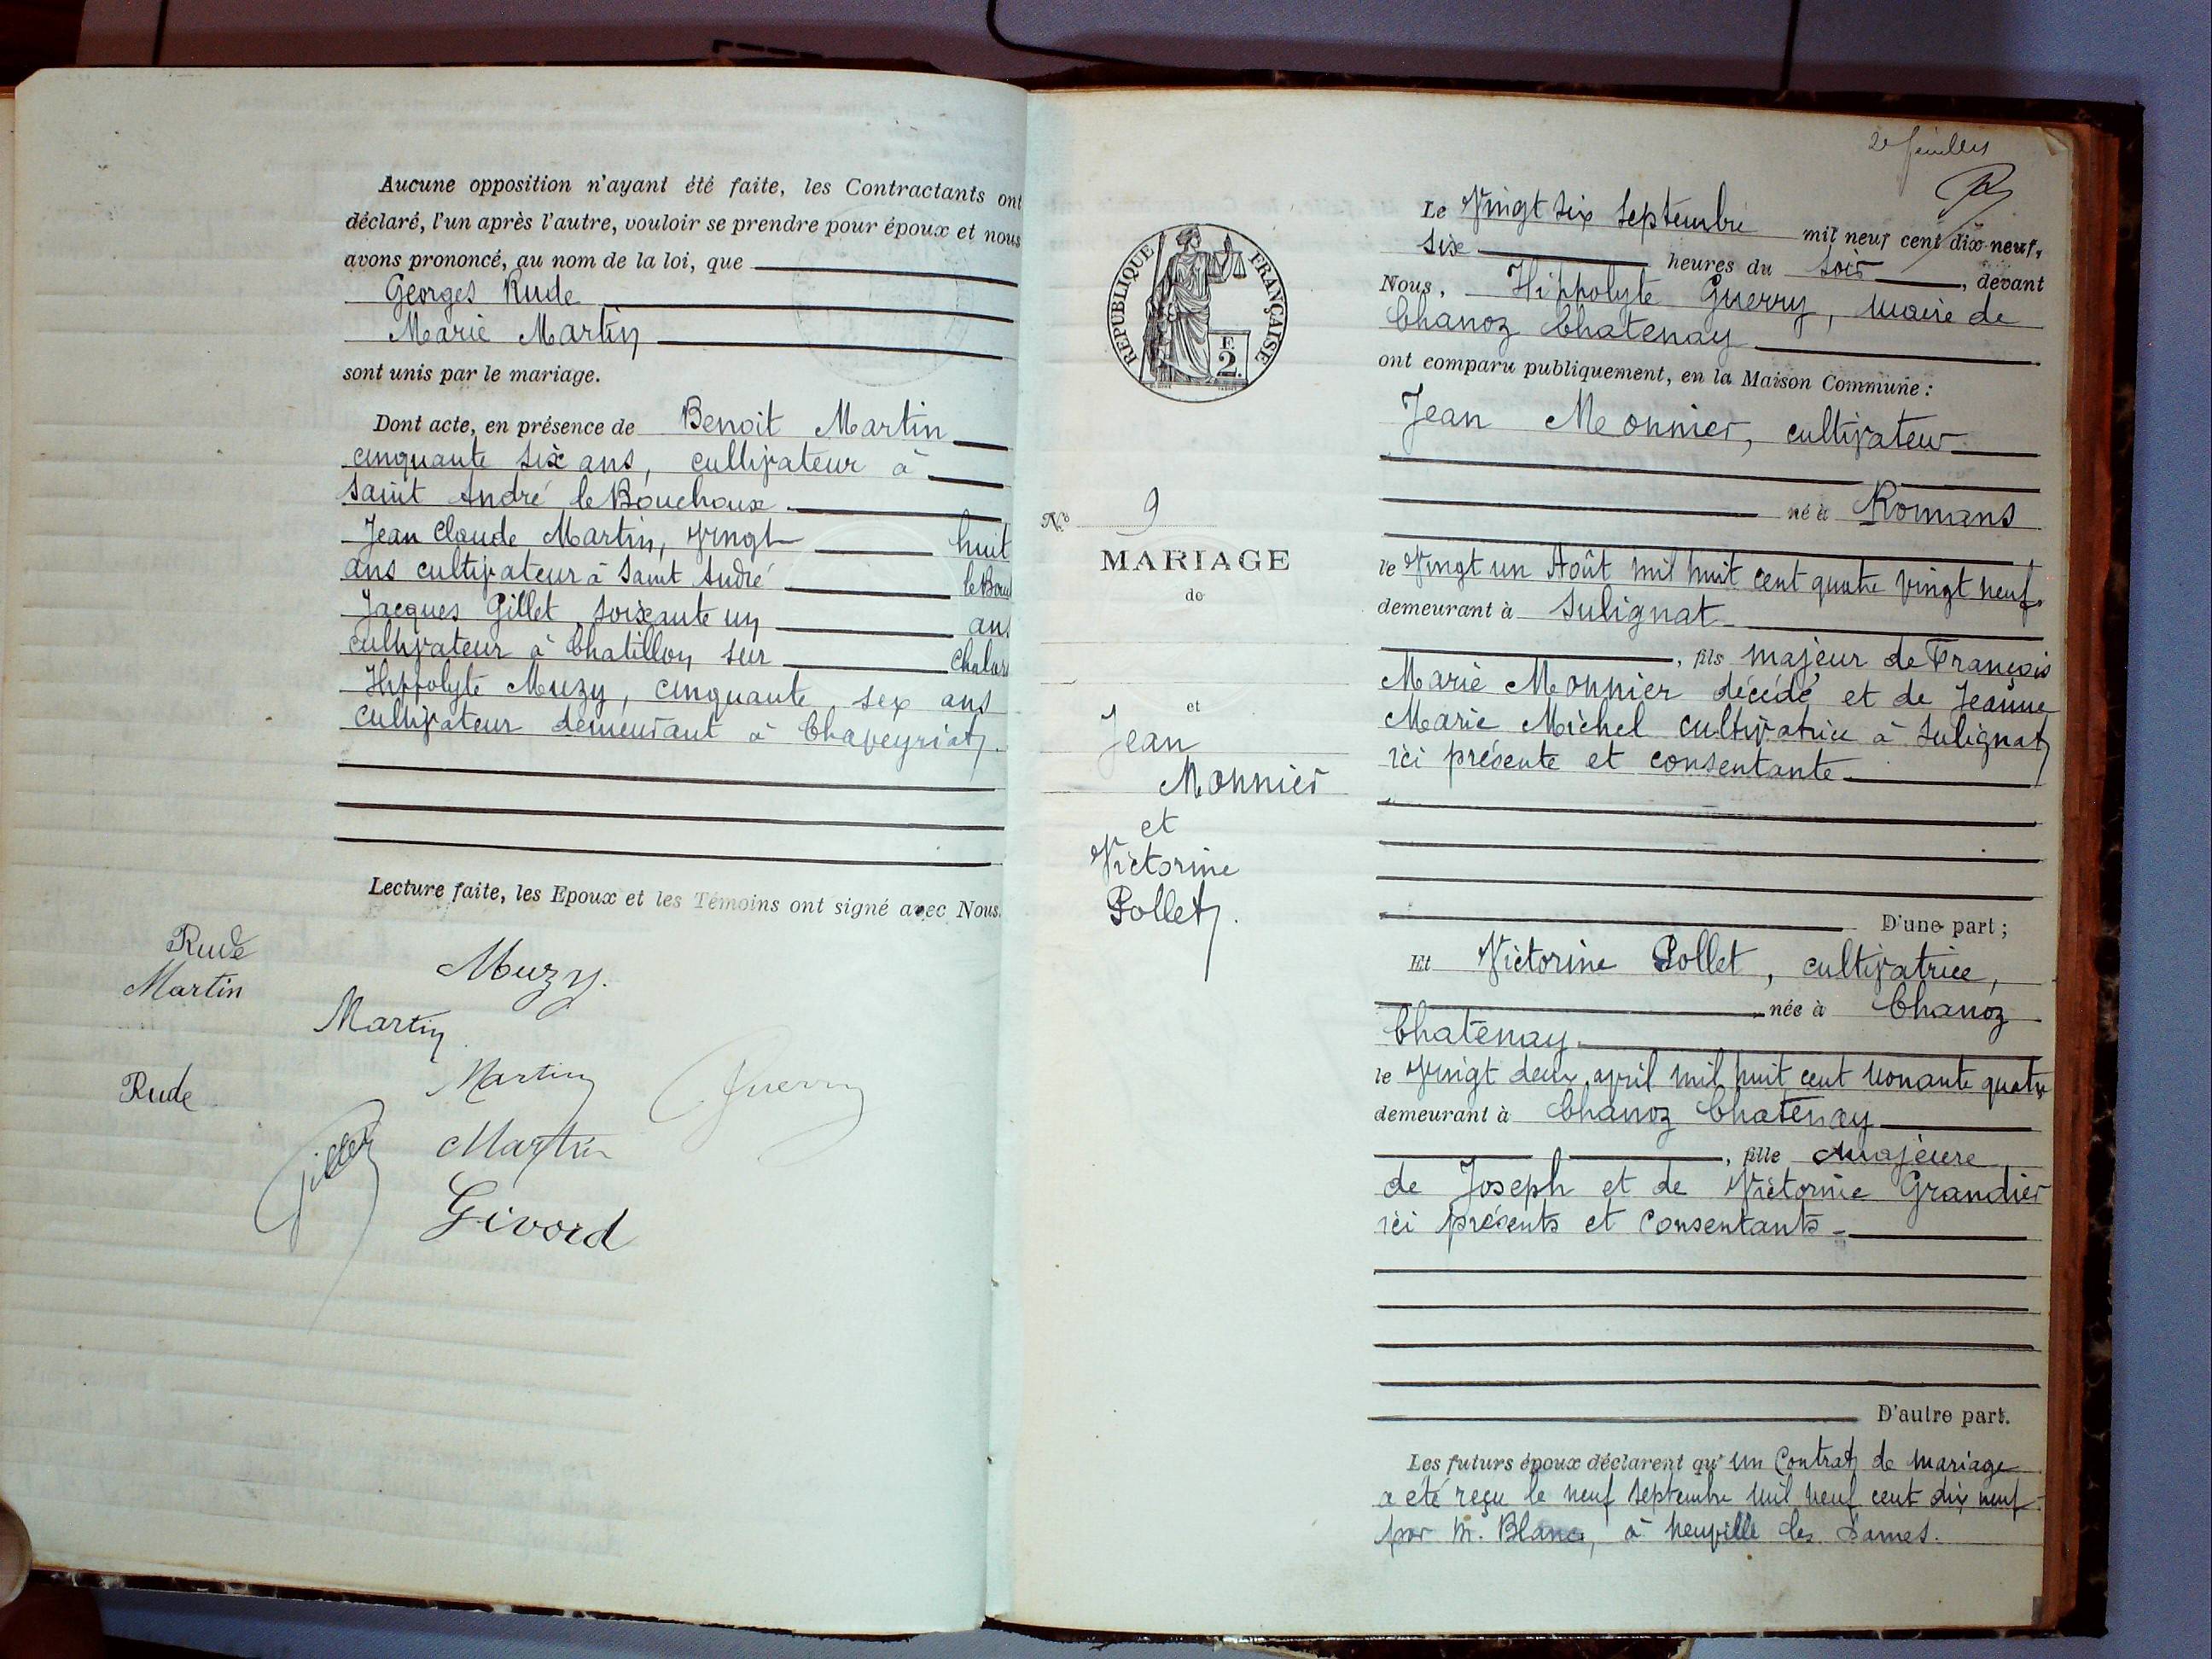 Aucune opposition n'ayant été faite, les Contractants ont
déclaré, l'un après l'autre, vouloir se prendre pour époux et nous
avons prononcé, au nom de la loi, que
Georges Rude
Marie Martin
sont unis par le mariage.
Dont acte, en présence de Benoit Martin
cinquante six ans, cultivateur à
Saint André le Bouchoux.
Jean Claude Martin, vingt huit
ans cultivateur à Saint André le Bou
Jacques Gillet soixante un ans
cultivateur à Chatillon sur Chalar
Hippolyte Muzy, cinquante six ans
cultivateur demeurant à Chaveyriat.
Lecture faite, les Epoux et les Témoins ont signé avec Nous.
Rude
Martin
Muzy.
Martin
Martin
Guerry
Rude
Martin
Gillet
Givord
2e feuillet
RÉPUBLIQUE FRANÇAISE
F.
2.
N° 9
MARIAGE
de
et
Jean
Monnier
et
Victorine
Pollet.
Le Vingt six Septembre mil neuf cent dix-neuf,
six heures du soir, devant
Nous, Hippolyte Guerry, maire de
Chanoz Chatenay
ont comparu publiquement, en la Maison Commune :
Jean Monnier, cultivateur
né à Romans
le Vingt un Août mil huit cent quatre vingt neuf.
demeurant à Sulignat
, fils majeur de François
Marie Monnier décédé et de Jeanne
Marie Michel cultivatrice à Sulignat
ici présente et consentante
D'une part ;
Et Victorine Pollet, cultivatrice,
née à Chanoz
Chatenay.
le Vingt deux avril mil huit cent nonante quatre
demeurant à Chanoz Chatenay
, fille majeure
de Joseph et de Victorine Grandier
ici présents et consentants
D'autre part.
Les futurs époux déclarent qu'un Contrat de mariage
a été reçu le neuf Septembre mil neuf cent dix neuf
par M. Blanc, à Neuville les Dames.